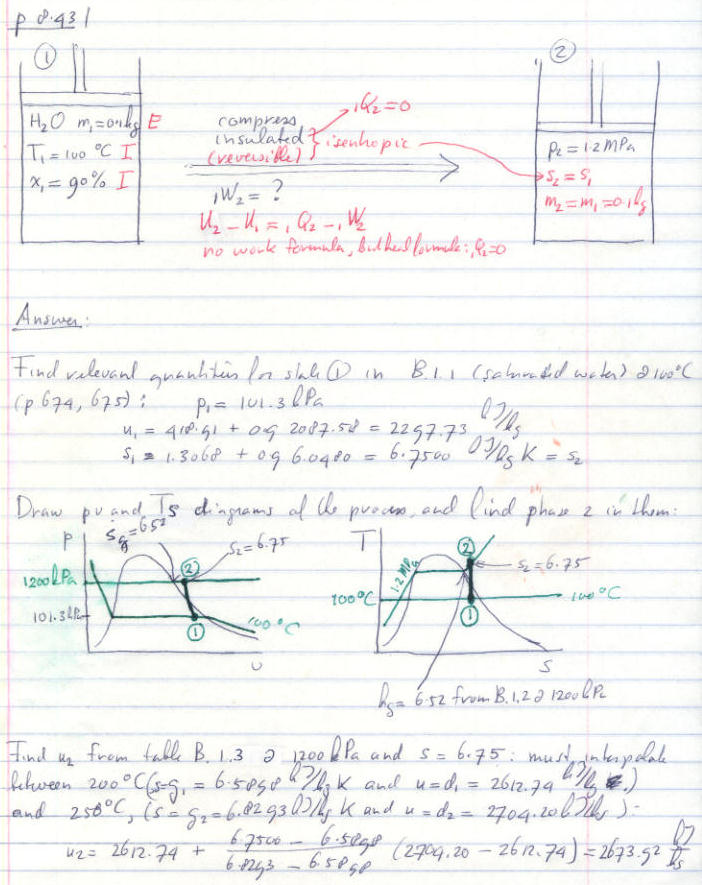 p 8.43
①
②
H₂O m₁=0.1kg E
T₁ = 100 °C I
x₁ = 90% I
compress
insulated
(reversible)
isentropic
₁Q₂=0
₁W₂ = ?
U₂ – U₁ = ₁Q₂ – ₁W₂
no work formula, but heat formula: ₁Q₂=0
p₂ = 1.2 MPa
s₂ = s₁
m₂ = m₁ = 0.1 kg
Answer:
Find relevant quantities for state ① in B.1.1 (saturated water) @ 100°C
(p 674, 675): p₁ = 101.3 kPa
u₁ = 418.91 + 0.9 2087.58 = 2297.73 kJ/kg
s₁ = 1.3068 + 0.9 6.0480 = 6.7500 kJ/kg K = s₂
Draw pv and Ts diagrams of the process, and find phase 2 in them:
p
s_g = 6.52
s₂ = 6.75
②
1200 kPa
101.3 kPa
①
100°C
υ
T
②
s₂ = 6.75
1.2 MPa
100°C
100°C
①
s
= 6.52 from B.1.2 @ 1200 kPa
Find u₂ from table B.1.3 @ 1200 kPa and s = 6.75: must interpolate
between 200°C (s=g₁ = 6.5898 kJ/kg K and u=d₁ = 2612.74 kJ/kg)
and 250°C, (s = g₂ = 6.8293 kJ/kg K and u = d₂ = 2704.20 kJ/kg):
u₂ = 2612.74 + (6.7500 – 6.5898)/(6.8293 – 6.5898) (2704.20 – 2612.74) = 2673.92 kJ/kg